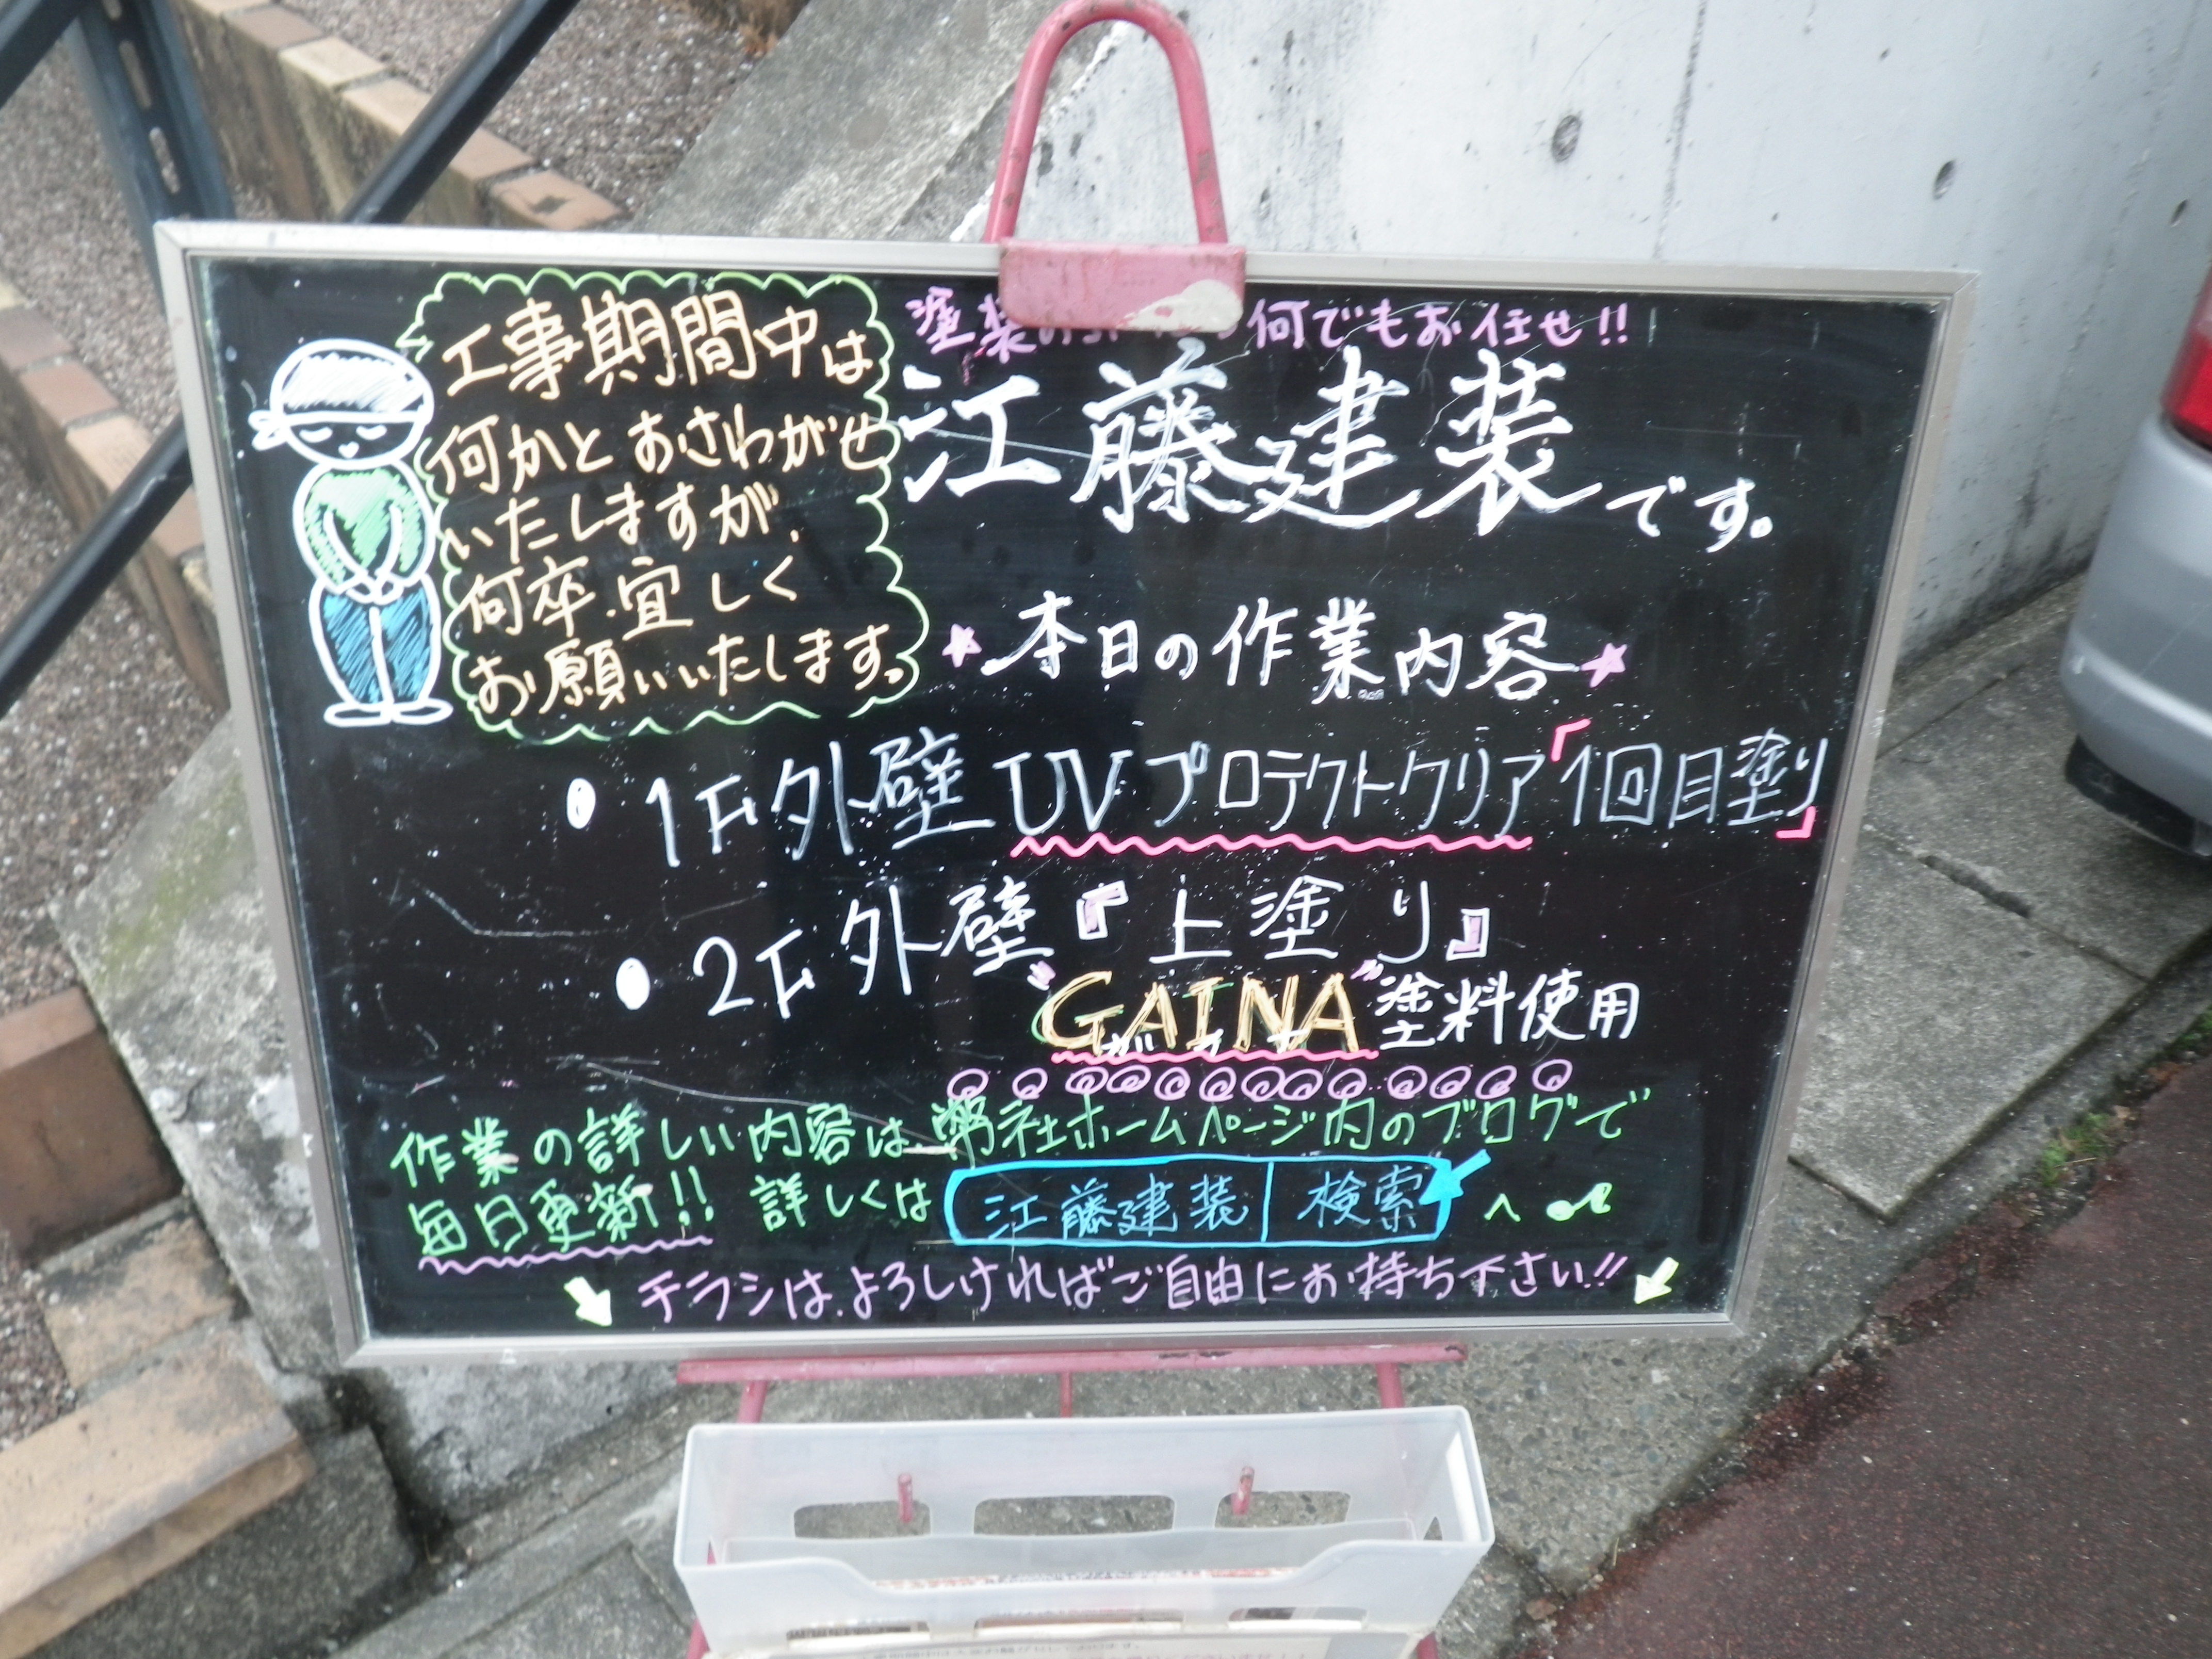 工事期間中は
何かとおさわがせ
いたしますが、
何卒、宜しく
お願いいたします。
塗装の 何でもお任せ!!
江藤建装です。
★本日の作業内容★
・1F外壁UVプロテクトクリア「1回目塗り」
・2F外壁『上塗り』
"GAINA"塗料使用
ガイナ
作業の詳しい内容は、弊社ホームページ内のブログで
毎日更新!! 詳しくは 江藤建装 検索 へ♪
チラシは、よろしければご自由にお持ち下さい!!